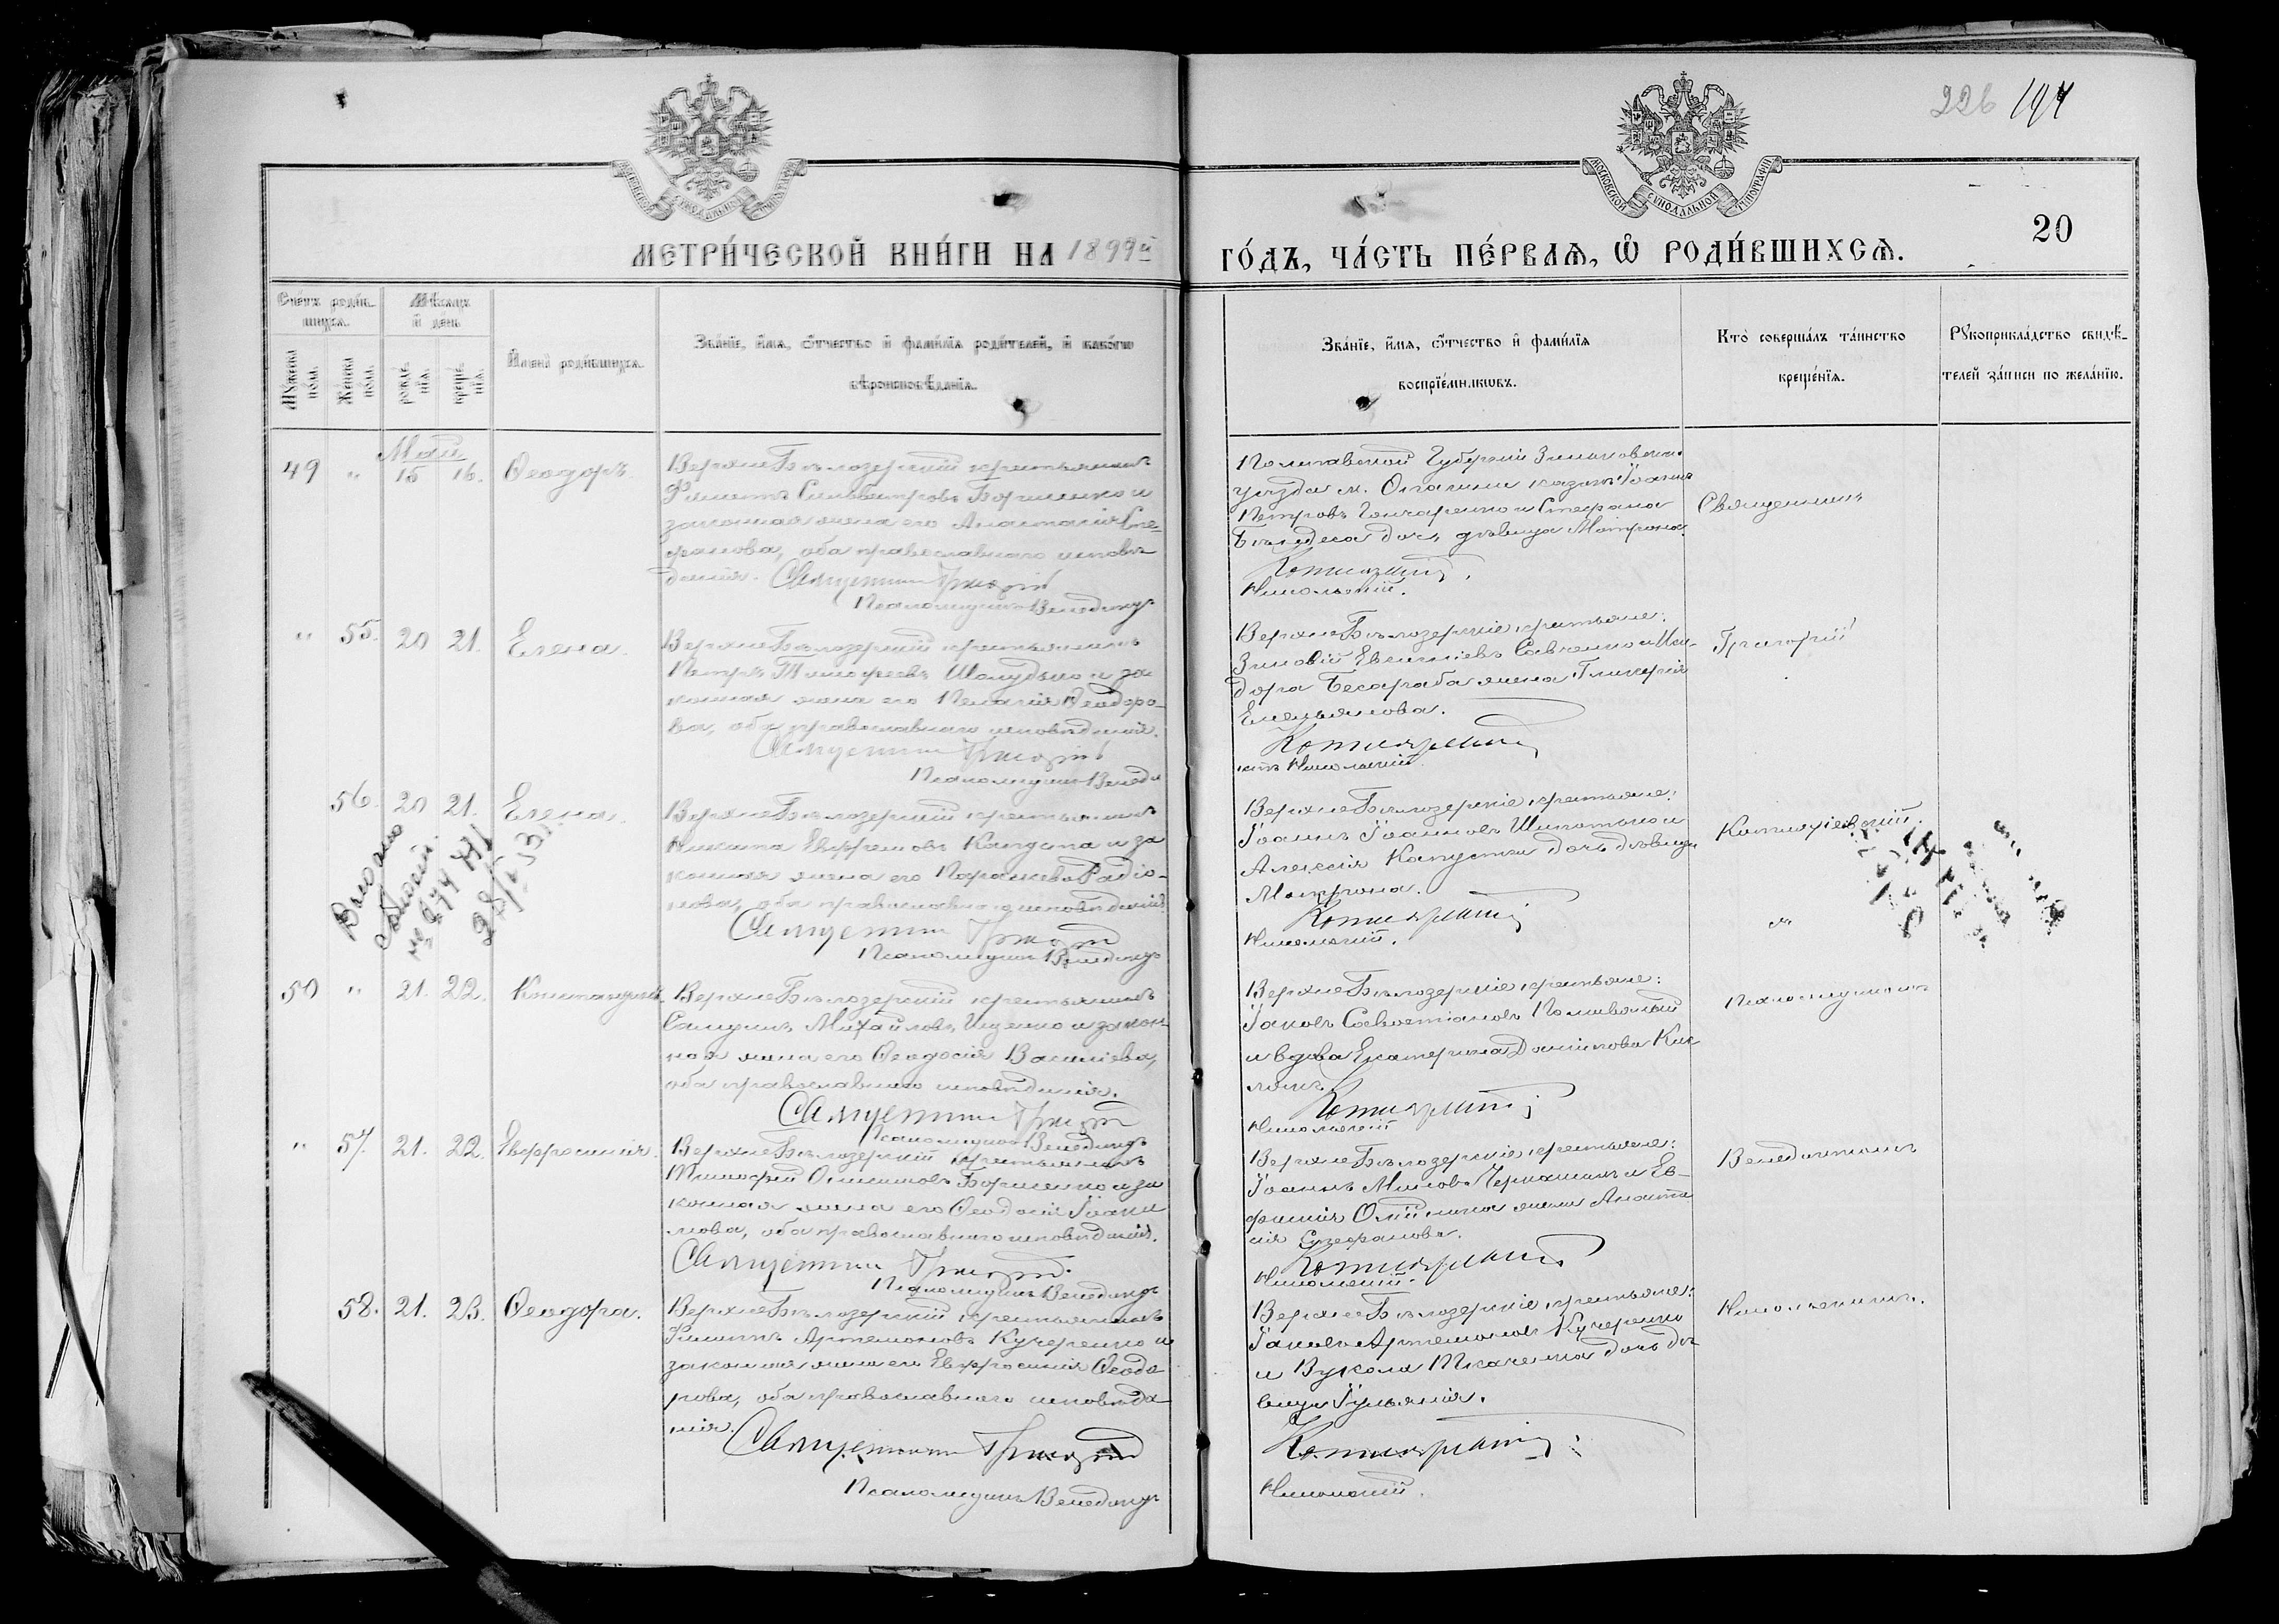 226 197
МОСКОВСКОЙ СѴНОДАЛЬНОЙ ТИПОГРАФІИ
20
МЕТРИ́ЧЕСКОЙ КНИ́ГИ НА 1899й
ГО́ДЪ, ЧА́СТЬ ПЕ́РВАѦ, Ѡ РОДИ́ВШИХСѦ.
Сче́тъ роди́вшихся.
Мѣсяцъ и день.
Мужеска пола.
Женска пола.
рожденія.
крещенія.
Имена родившихся.
Званіе, имя, отчество и фамилія родителей, и какого
вѣроисповѣданія.
Званіе, имя, отчество и фамилія
воспріемниковъ.
Кто совершалъ таинство
крещенія.
Рукоприкладство свидѣ-
телей записи по желанію.
Май
49 " 15 16. Ѳеодоръ.
ВерхнеБѣлозерскій крестьянинъ
Филиппъ Сильвестровъ Борщенко и
законная жена его Анастасія Сте-
фанова, оба православнаго исповѣ-
данія. Священникъ Григорій
Псаломщикъ Венедикт
Полтавской Губерніи Зиньковскаго
уѣзда м. Опошни казакъ Іоаннъ
Петровъ Гончаренко и Стефана
дочь дѣвица Матрона.
Котляревскій.
Никольскій.
Священникъ
" 55. 20 21. Елена.
ВерхнеБѣлозерскій крестьянинъ
Петръ Тимофеевъ Шолудько и за
конная жена его Пелагія Ѳеодоро-
ва, оба православнаго исповѣданія.
Священникъ Григорій
Псаломщикъ Венеди
ВерхнеБѣлозерскіе крестьяне:
Зиновій Евгеніевъ Савченко и Иси-
дора Бесараба жена Гликерія
Емельянова.
Котляревскій
ктъ Никольскій.
Григорій
56. 20 21. Елена.
ВерхнеБѣлозерскій крестьянинъ
Никита Ефремовъ Капуста и за
конная жена его Параскева Радіо-
нова, оба православнаго исповѣданія.
Священникъ Григорій
Псаломщикъ Венедикт
ВерхнеБѣлозерскіе крестьяне:
Іоаннъ Іоанновъ Шипотько и
Алексія Капусты дочь дѣвица
Матрона.
Котляревскій
Никольскій.
Котляревскій.
50 " 21. 22. Константинъ.
ВерхнеБѣлозерскій крестьянинъ
Самуилъ Михайловъ Ищенко и закон-
ная жена его Ѳеодосія Василіева,
оба православнаго исповѣданія.
Священникъ Григорій
Псаломщикъ Венедикт
ВерхнеБѣлозерскіе крестьяне:
Іаковъ Савостіановъ Поливяный
и вдова Екатерина Даніилова
Котляревскій
Никольскій
Псаломщикомъ
" 57. 21. 22. Евфросинія.
ВерхнеБѣлозерскій крестьянинъ
Тимофей Борщенко и за
конная жена его Ѳеодосія Іоанн
нова, оба православнаго исповѣданія.
Священникъ Григорій.
Псаломщикъ Венедикт
ВерхнеБѣлозерскіе крестьяне:
Іоаннъ Черкашинъ и Ев-
жена Анаста
сія
Котляревскій
Никольскій.
Венедиктомъ
58. 21. 23. Ѳеодора.
ВерхнеБѣлозерскій крестьянинъ
Филиппъ Артемоновъ Кучеренко и
законная жена его Евфросинія Ѳеодо
рова, оба православнаго исповѣда
нія.
Священникъ Григорій
Псаломщикъ Венедикт
ВерхнеБѣлозерскіе крестьяне:
Іаковъ Артемоновъ Кучеренко
и Вукола Ткаченка дочь дѣ
вица Іуліанія.
Котляревскій
Никольскій.
Никольскимъ.